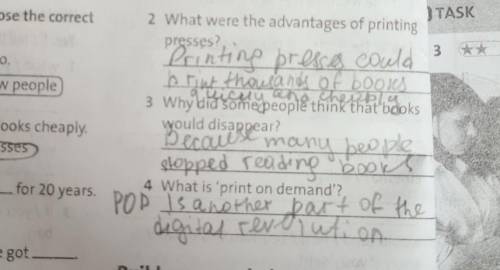 ose the correct
o.
w people
ooks cheaply.
sses
for 20 years.
e got
2 What were the advantages of printing
presses?
Printing presces could
print thousands of books
quickly and cheaply
3 Why did some people think that books
would disappear?
Because many people
stopped reading books
4 What is 'print on demand'?
POD Is another part of the
digital revolution
TASK
3